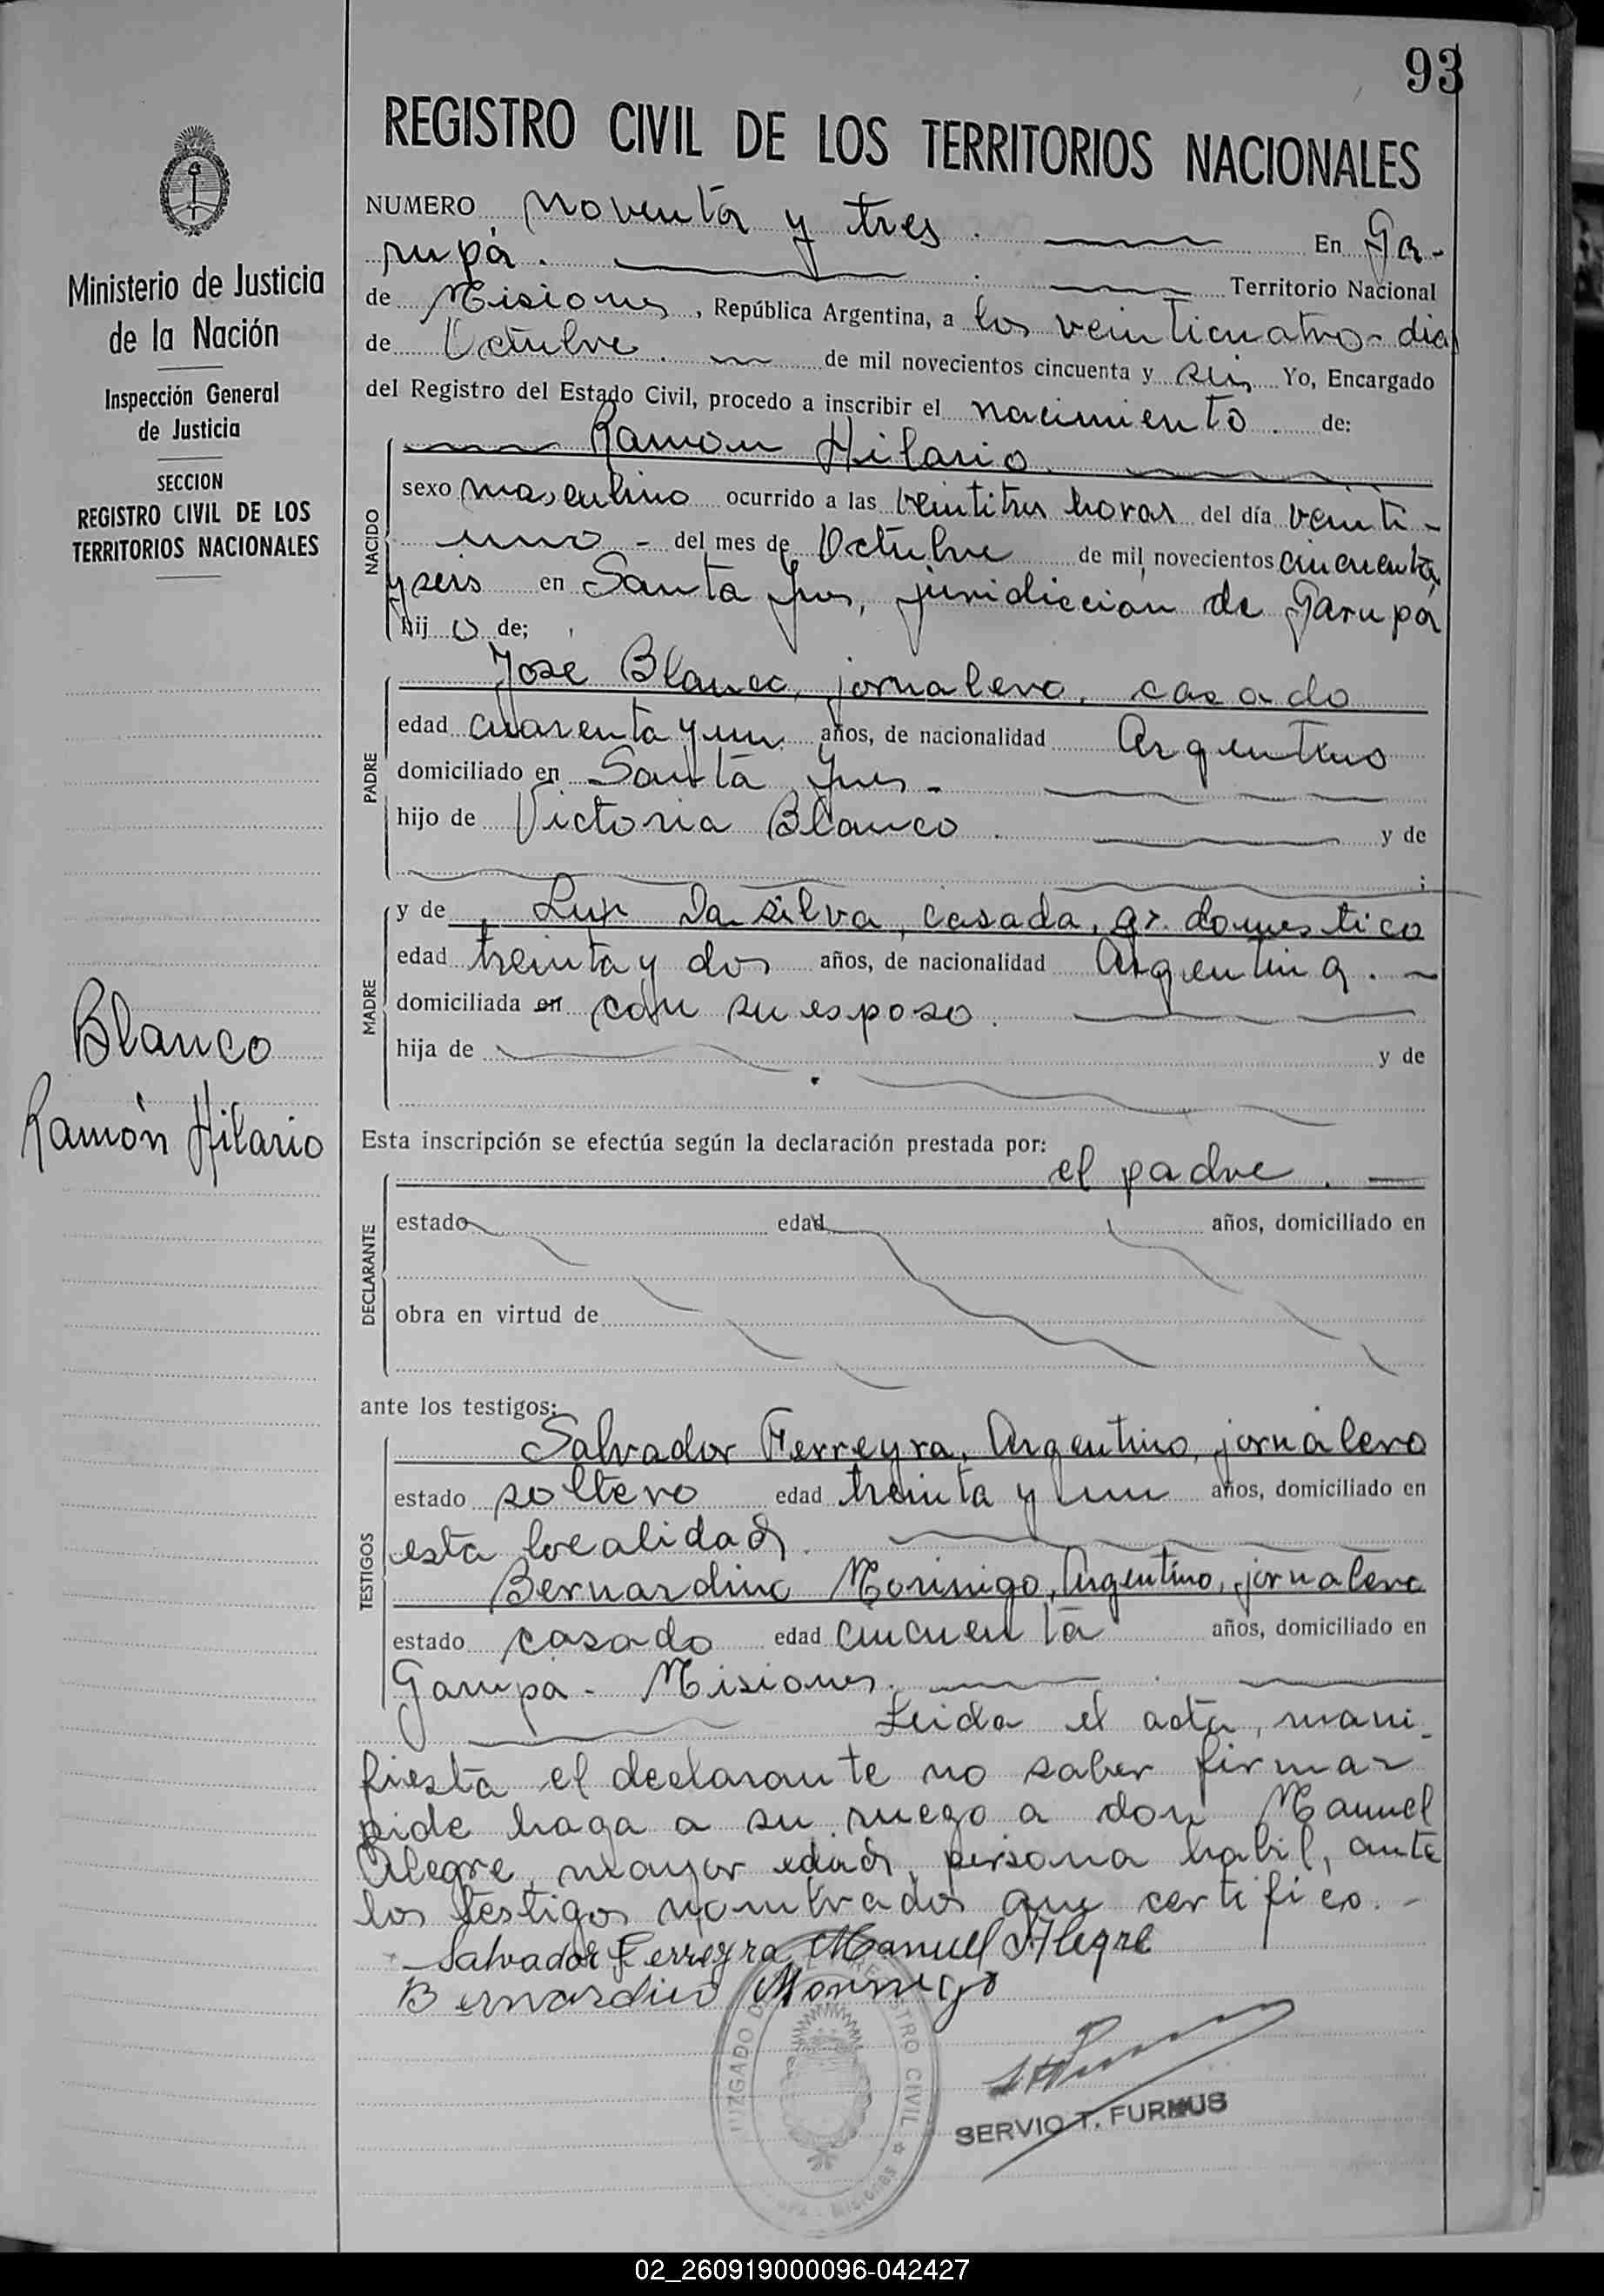 93
REGISTRO CIVIL DE LOS TERRITORIOS NACIONALES
Ministerio de Justicia
de la Nación
Inspección General
de Justicia
SECCION
REGISTRO CIVIL DE LOS
TERRITORIOS NACIONALES
Blanco
Ramón Hilario
NUMERO noventa y tres. En Ga-
rupá. Territorio Nacional
de Misiones, República Argentina, a los veinticuatro - dias
de Octubre. de mil novecientos cincuenta y seis Yo, Encargado
del Registro del Estado Civil, procedo a inscribir el nacimiento. de:
Ramón Hilario.
NACIDO
sexo masculino ocurrido a las veintitres horas del día veinti-
uno - del mes de Octubre de mil novecientos cincuenta
y seis en Santa Ynes, juridiccion de Garupá
hijo de;
José Blanco, jornalero, casado
PADRE
edad cuarenta y un años, de nacionalidad Argentino
domiciliado en Santa Ynes -
hijo de Victoria Blanco. y de
;
y de Luz Da silva, casada, qr. domestico
MADRE
edad treinta y dos años, de nacionalidad Argentina. -
domiciliada en con su esposo.
hija de y de
Esta inscripción se efectúa según la declaración prestada por:
el padre. -
DECLARANTE
estado edad años, domiciliado en
obra en virtud de
ante los testigos:
Salvador Ferreyra, Argentino, jornalero
TESTIGOS
estado soltero edad treinta y un años, domiciliado en
esta localidad.
Bernardino Morinigo, Argentino, jornalero
estado casado edad cincuenta años, domiciliado en
Garupá - Misiones.
Leida el acta, mani-
fiesta el declarante no saber firmar
pide haga a su ruego a don Manuel
Alegre, mayor edad, persona habil, ante
los testigos nombrados que certifico. -
Salvador Ferreyra Manuel Alegre
Bernardino Morinigo
JUZGADO DE REGISTRO CIVIL
Misiones
SERVIO T. FURMUS
02_260919000096-042427